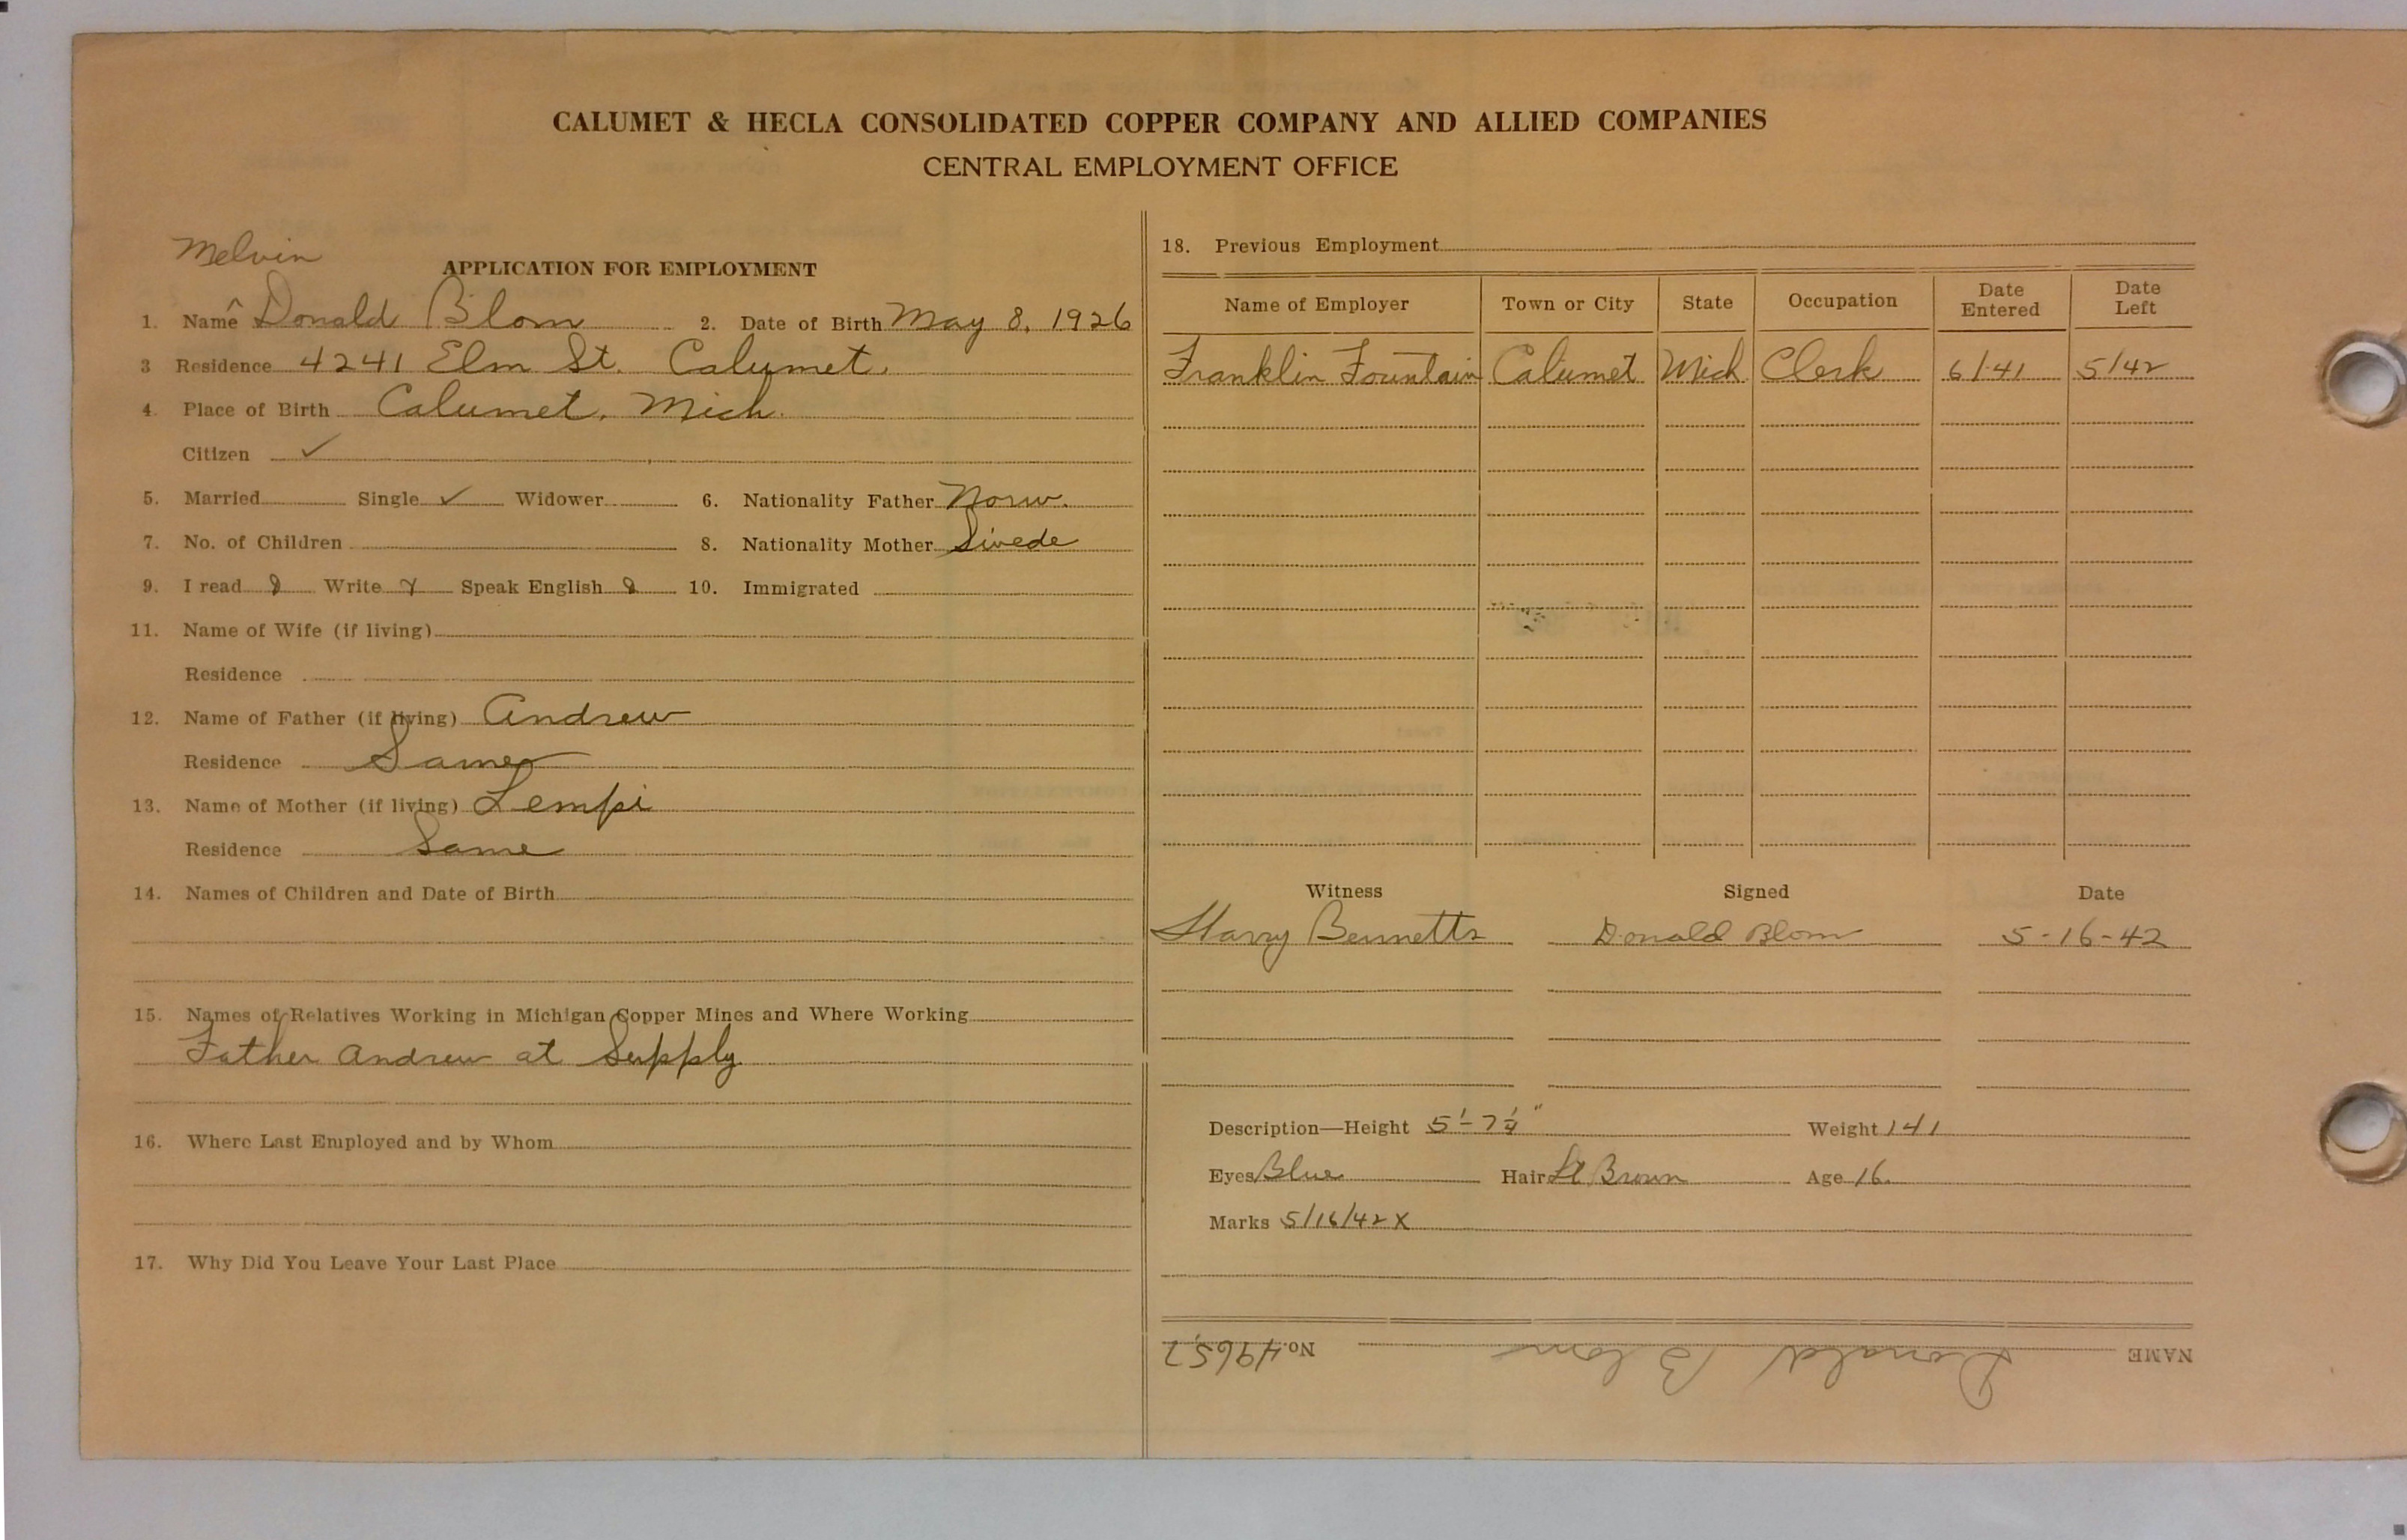 CALUMET & HECLA CONSOLIDATED COPPER COMPANY AND ALLIED COMPANIES
CENTRAL EMPLOYMENT OFFICE
Melvin
APPLICATION FOR EMPLOYMENT
1. Name ^ Donald Blom 2. Date of Birth May 8, 1926
3 Residence 4241 Elm St. Calumet.
4. Place of Birth Calumet, Mich.
Citizen ✓
5. Married Single ✓ Widower 6. Nationality Father Norw.
7. No. of Children 8. Nationality Mother Swede
9. I read Write Speak English 10. Immigrated
11. Name of Wife (if living)
Residence
12. Name of Father (if living) Andrew
Residence Same
13. Name of Mother (if living) Lempi
Residence Same
14. Names of Children and Date of Birth
15. Names of Relatives Working in Michigan Copper Mines and Where Working
Father Andrew at Supply
16. Where Last Employed and by Whom
17. Why Did You Leave Your Last Place
18. Previous Employment
Name of Employer Town or City State Occupation Date Entered Date Left
Franklin Fountain Calumet Mich Clerk 6/41 5/42
Witness Signed Date
Harry Bennetts Donald Blom 5-16-42
Description—Height 5'-7¼" Weight 141
Eyes Blue Hair Lt Brown Age 16.
Marks 5/16/42 X
NAME Donald Blom No. 49657